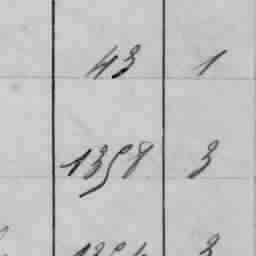 43 1
1358 3
3